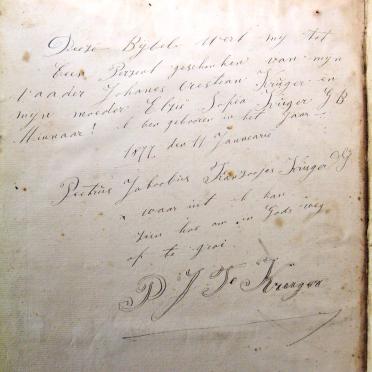 Deese Bybel Wert my tot
Een Persent geschenken van myn
Vaader Johanes Cresteian Kruger en
myn moeder Elsie Sofia Kruger G B
Minnaar! ik ben geboren in het Jaar
1877 den 11 Januearie
Petrus Jakoobus Fransoojes Kruger D G
waar uit ik kan
zien hoe om in Gods weg
op te groi
P J Fs Krueger